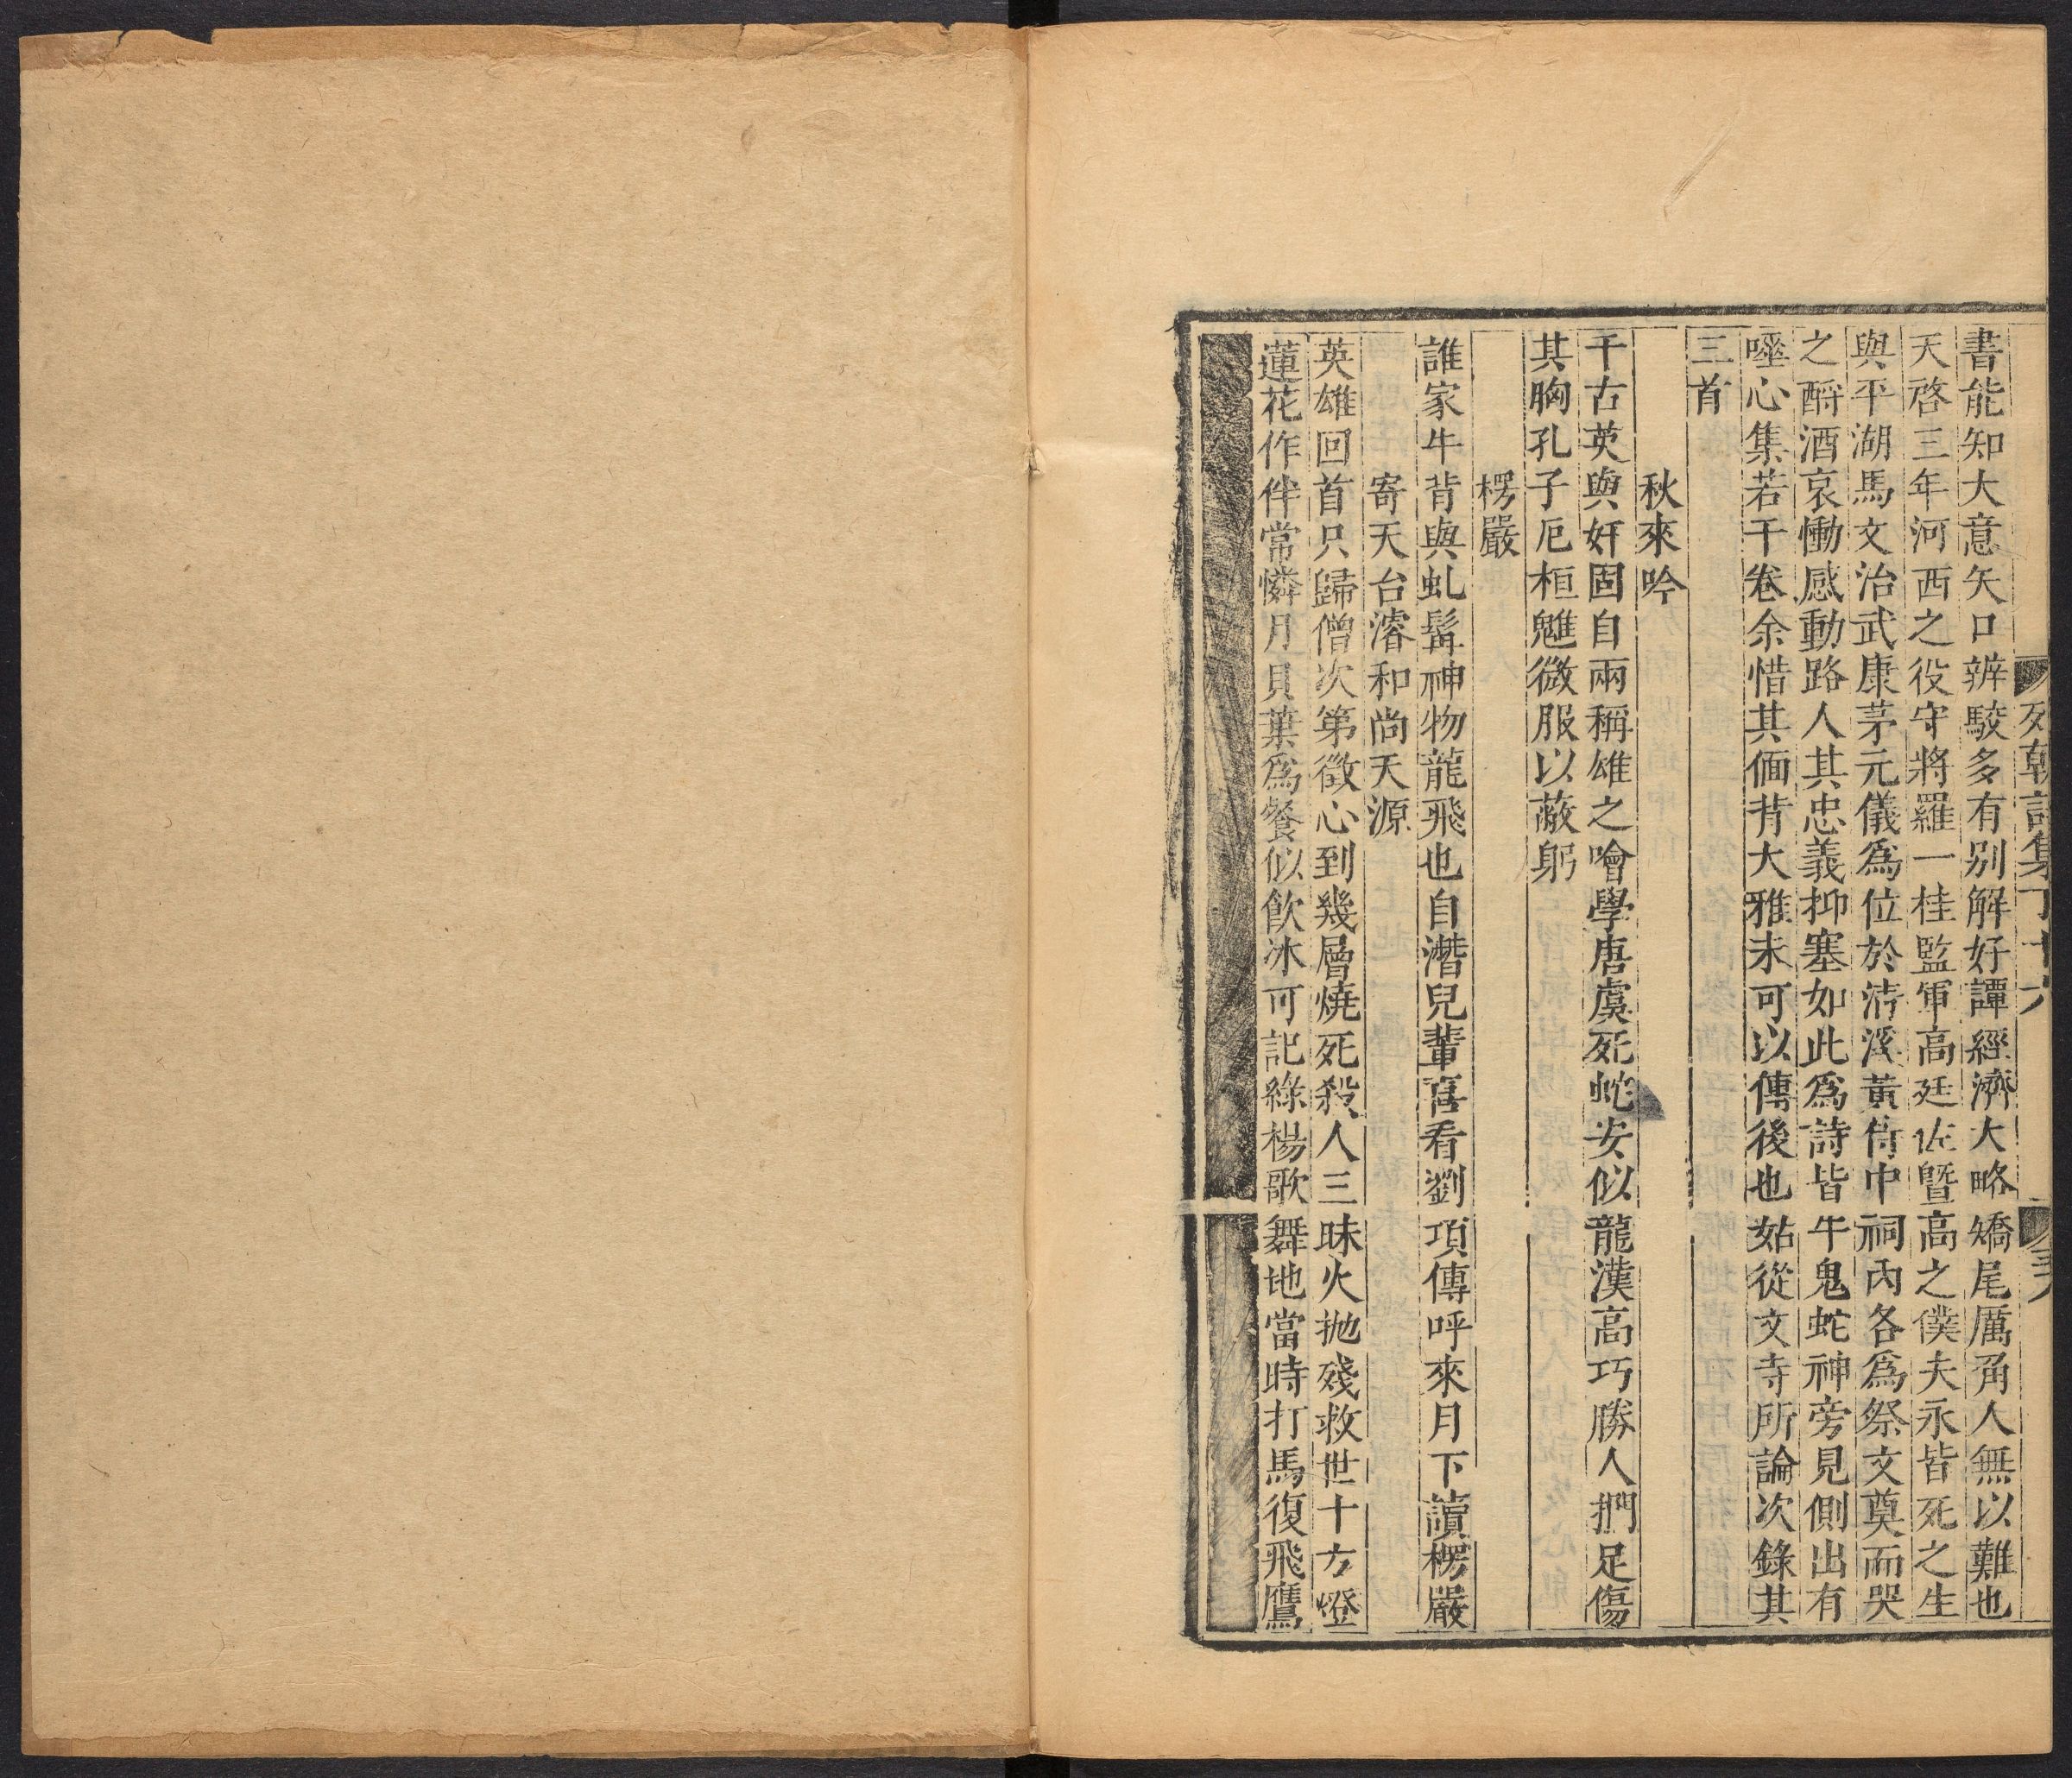 朝詩集丁十六
書能知大意矢口辨駮多有別解好譚經濟大略矯尾厲角人無以難也
天啓三年河西之役守將羅一桂監軍高廷佐曁高之僕夫永皆死之生
與平湖馬文治武康茅元儀爲位於淸溪黃侍中祠內各爲祭文奠而哭
之酹酒哀慟感動路人其忠義抑塞如此爲詩皆牛鬼蛇神旁見側出有
嘔心集若干卷余惜其偭背大雅未可以傳後也姑從文寺所論次錄其
三首
秋來吟
千古英與奸固自兩稱雄之噲學唐虞死蛇安似龍漢高巧勝人捫足傷
其胸孔子厄桓魋微服以蔽躬
楞嚴
誰家牛背與虬髯神物龍飛也自潛兒輩喜看劉項傳呼來月下讀楞嚴
寄天台濬和尚天源
英雄回首只歸僧次第徵心到幾層燒死殺人三昧火拋殘救世十方燈
蓮花作伴常憐月貝葉爲餐似飮冰可記綠楊歌舞地當時打馬復飛鷹